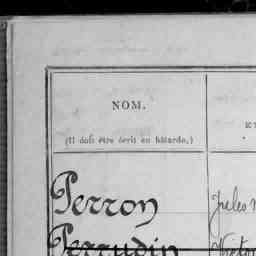 NOM.
(Il doit être écrit en bâtarde.)
Perron
Jules
Perrudin
Victor